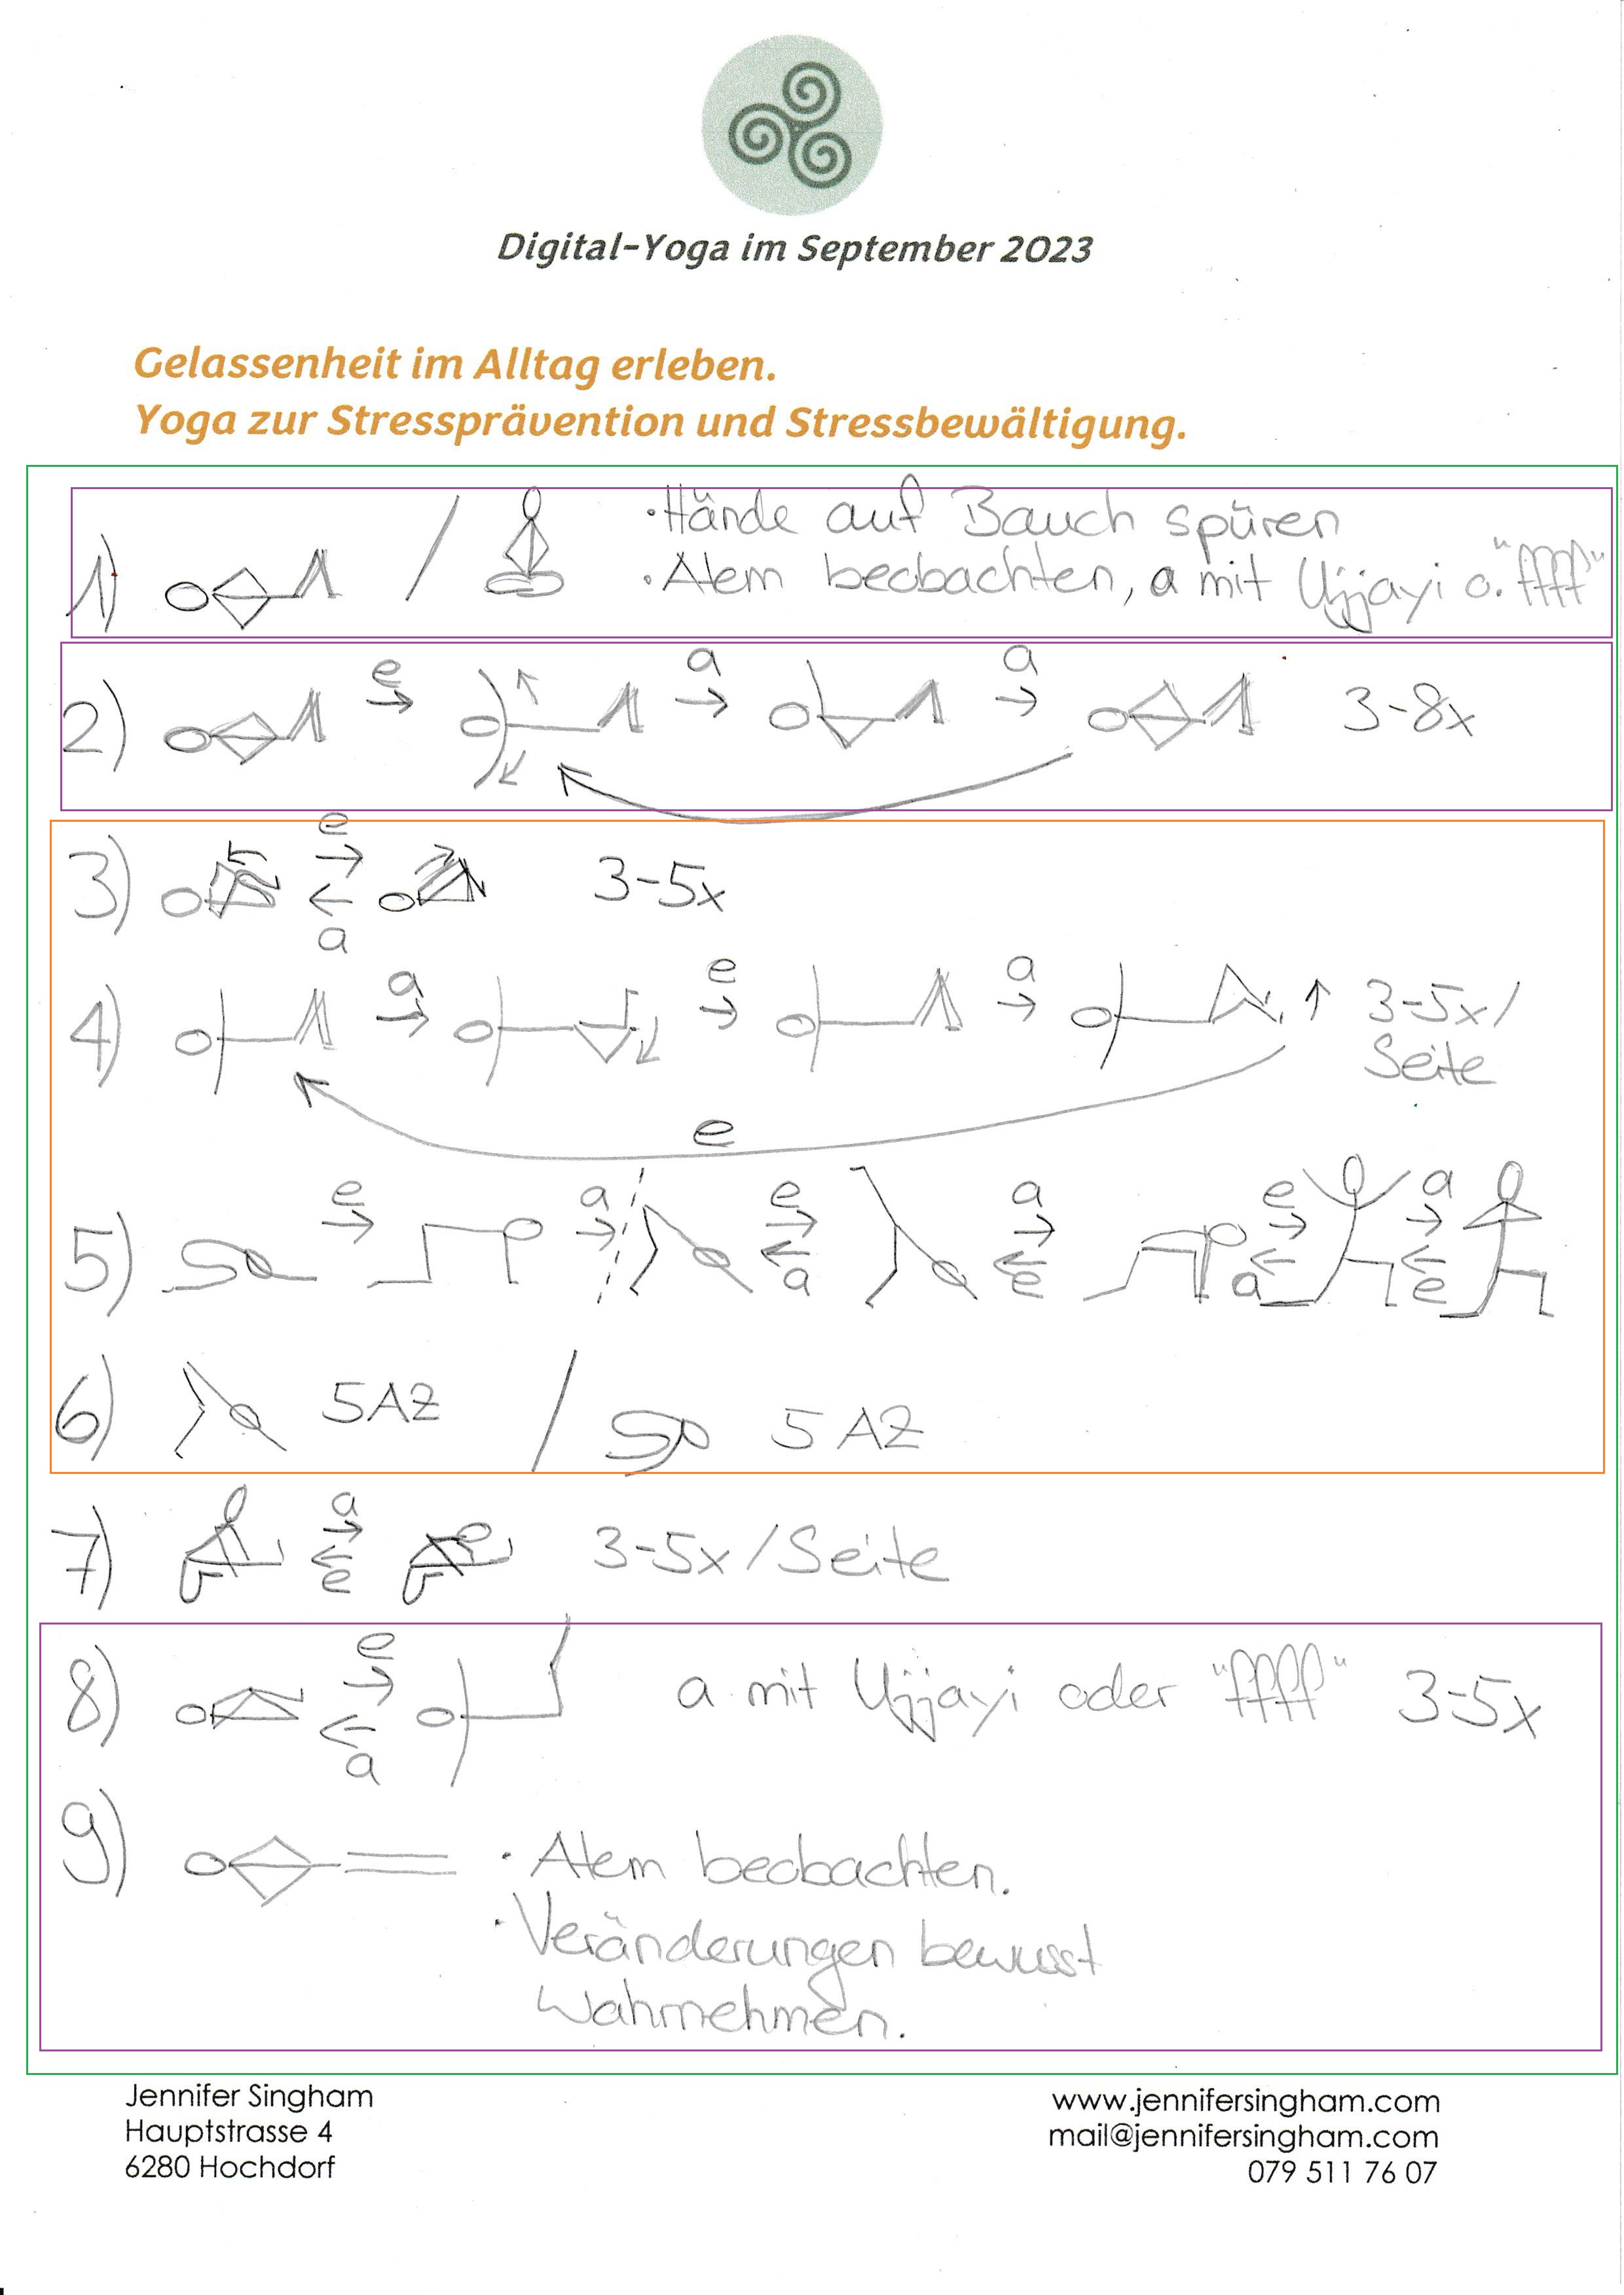 Digital-Yoga im September 2023
Gelassenheit im Alltag erleben.
Yoga zur Stressprävention und Stressbewältigung.
1) / · Hände auf Bauch spüren
· Atem beobachten, a mit Ujjayi o. "ffff"
e a a
2) 3-8x
e
3) 3-5x
a
a e a
4) 3-5x/
Seite
e
e a e a e a
5)
a e a e
6) 5AZ / 5 AZ
a
7) 3-5x/Seite
e
e
8) a mit Ujjayi oder "ffff" 3-5x
a
9) · Atem beobachten.
· Veränderungen bewusst
wahrnehmen.
Jennifer Singham
Hauptstrasse 4
6280 Hochdorf
www.jennifersingham.com
mail@jennifersingham.com
079 511 76 07